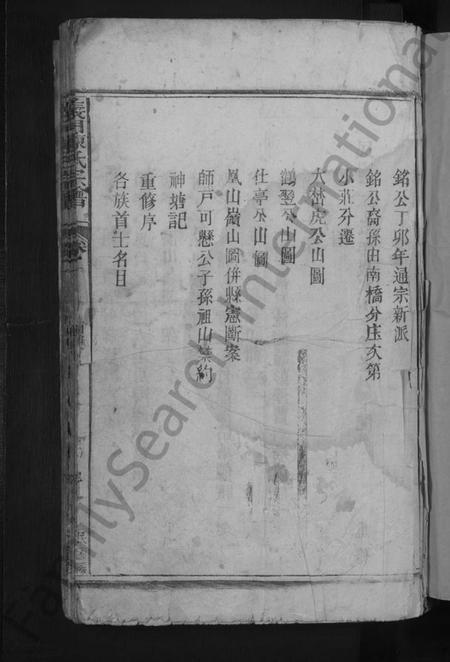 銘公丁卯年通宗新派
銘公裔孫由南橋分庄次第
小莊外遷
大 虎公山圖
鶴 公山圖
仕亭公山圖
鳳山嶺山圖併縣憲斷案
師戸可懸公子孫祖山 約
神塘記
重修序
各族首士名目
陳氏宗譜
FamilySearch International